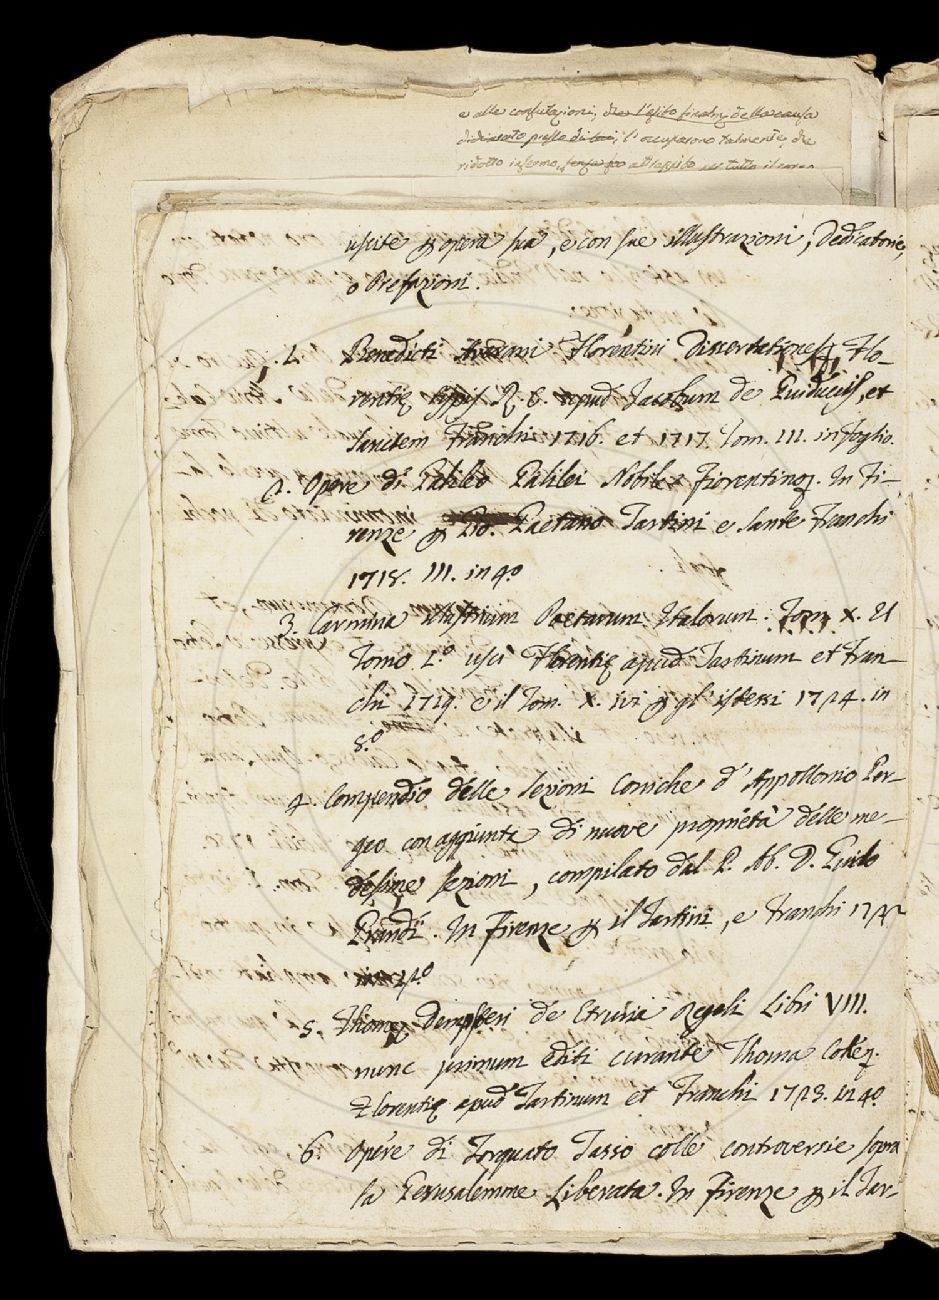 e alle confutazioni, che l'esito finalm. della causa
di, l'occuparono talmente, che
ridotto infermo, tutto il corso
uscite p opera sua, e con sue illustrazioni, Dedicatorie,
o Prefazioni.
1. Benedicti Averani Florentini Dissertationes Flo-
rentiæ typis R. C. apud Jacobum de Guiduccis, et
Sanctem Franchi 1716. et 1717. Tom. III. in foglio.
2. Opere di Galileo Galilei Nobile Fiorentino. In Fi-
renze p Gio. Gaetano Tartini e Sante Franchi
1718. III. in 4º
3. Carmina Illustrium Poetarum Italorum. Tom. X. Il
Tomo 1.º uscì Florentiæ apud Tartinum et Fran-
chi 1719. e il Tom. X. ivi p gl'istessi 1724. in
8.º
4. Compendio delle Sezioni Coniche d'Appollonio Per-
geo con aggiunte di nuove proprietà delle me-
desime sezioni, compilato dal P. Ab. D. Guido
Grandi. In Firenze p il Tartini, e Franchi 1722
in 4º
5. Thomæ Dempsteri de Etruria Regali Libri VIII.
nunc primum editi curante Thoma Coke.
Florentiæ apud Tartinum et Franchi 1723. in 4º
6. Opere di Torquato Tasso colle controversie sopra
la Gerusalemme Liberata. In Firenze p il Tar-